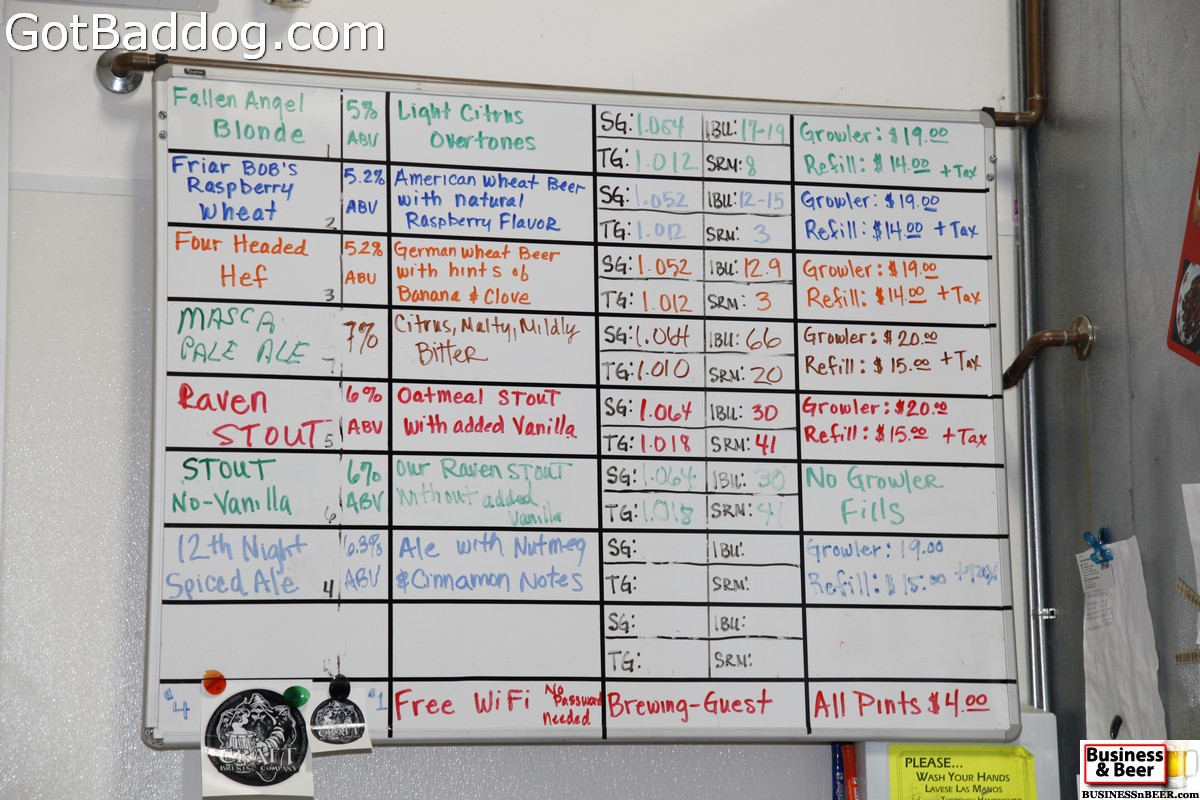 GotBaddog.com
Fallen Angel
Blonde
1
5%
ABV
Light Citrus
Overtones
SG: 1.064
IBU: 17-19
TG: 1.012
SRM: 8
Growler: $19.00
Refill: $14.00 + Tax
Friar BOB'S
Raspberry
Wheat
2
5.2%
ABV
American Wheat Beer
with natural
Raspberry Flavor
SG: 1.052
IBU: 12-15
TG: 1.012
SRM: 3
Growler: $19.00
Refill: $14.00 + Tax
Four Headed
Hef
3
5.2%
ABV
German Wheat Beer
with hints of
Banana & Clove
SG: 1.052
IBU: 12.9
TG: 1.012
SRM: 3
Growler: $19.00
Refill: $14.00 + Tax
MASCA
PALE ALE
7
7%
Citrus, Malty, Mildly
Bitter
SG: 1.064
IBU: 66
TG: 1.010
SRM: 20
Growler: $20.00
Refill: $15.00 + Tax
Raven
STOUT
5
6%
ABV
Oatmeal STOUT
with added Vanilla
SG: 1.064
IBU: 30
TG: 1.018
SRM: 41
Growler: $20.00
Refill: $15.00 + Tax
STOUT
No-Vanilla
6
6%
ABV
Our Raven STOUT
without added
Vanilla
SG: 1.064
IBU: 30
TG: 1.018
SRM: 41
No Growler
Fills
12th Night
Spiced Ale
4
6.3%
ABV
Ale with Nutmeg
& Cinnamon Notes
SG:
IBU:
TG:
SRM:
Growler: 19.00
Refill: $15.00 + Tax
SG:
IBU:
TG:
SRM:
#4
#1
Free WiFi
No
Password
needed
Brewing-Guest
All Pints $4.00
CRAFT
BREWING COMPANY
CRAFT
PLEASE...
WASH YOUR HANDS
LAVESE LAS MANOS
Business
& Beer
BUSINESSnBEER.com